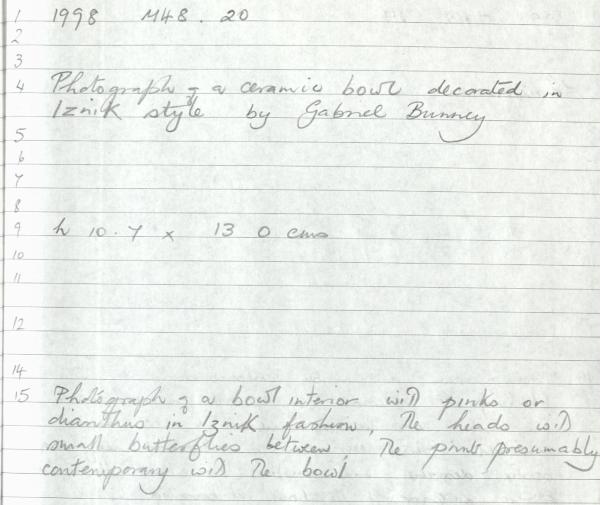 1 1998 M48. 20
2
3
4 Photograph of a ceramic bowl decorated in
Iznik style by Gabriel Bunney
5
6
7
8
9 h 10.7 x 13 0 cms
10
11
12
14
15 Photograph of a bowl interior with pinks or
dianthus in Iznik fashion, The heads with
small butterflies between, The print presumably
contemporary with The bowl